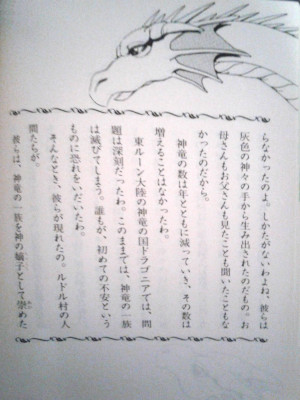 らなかったのよ。しかたがないわよね、彼らは
灰色の神々の手から生み出されたのだもの。お
母さんもお父さんも見たことも聞いたこともな
かったのだから。
神竜の数は年とともに減っていき、その数は
増えることはなかったわ。
東ルーン大陸の神竜の国ドラゴニアでは、問
題は深刻だったわ。このままでは、神竜の一族
は滅びてしまう。誰もが、初めての不安という
ものに恐れをいだいたわ。
そんなとき、彼らが現れたの。ルドル村の人
間たちが。
彼らは、神竜の一族を神の嫡子として崇めた